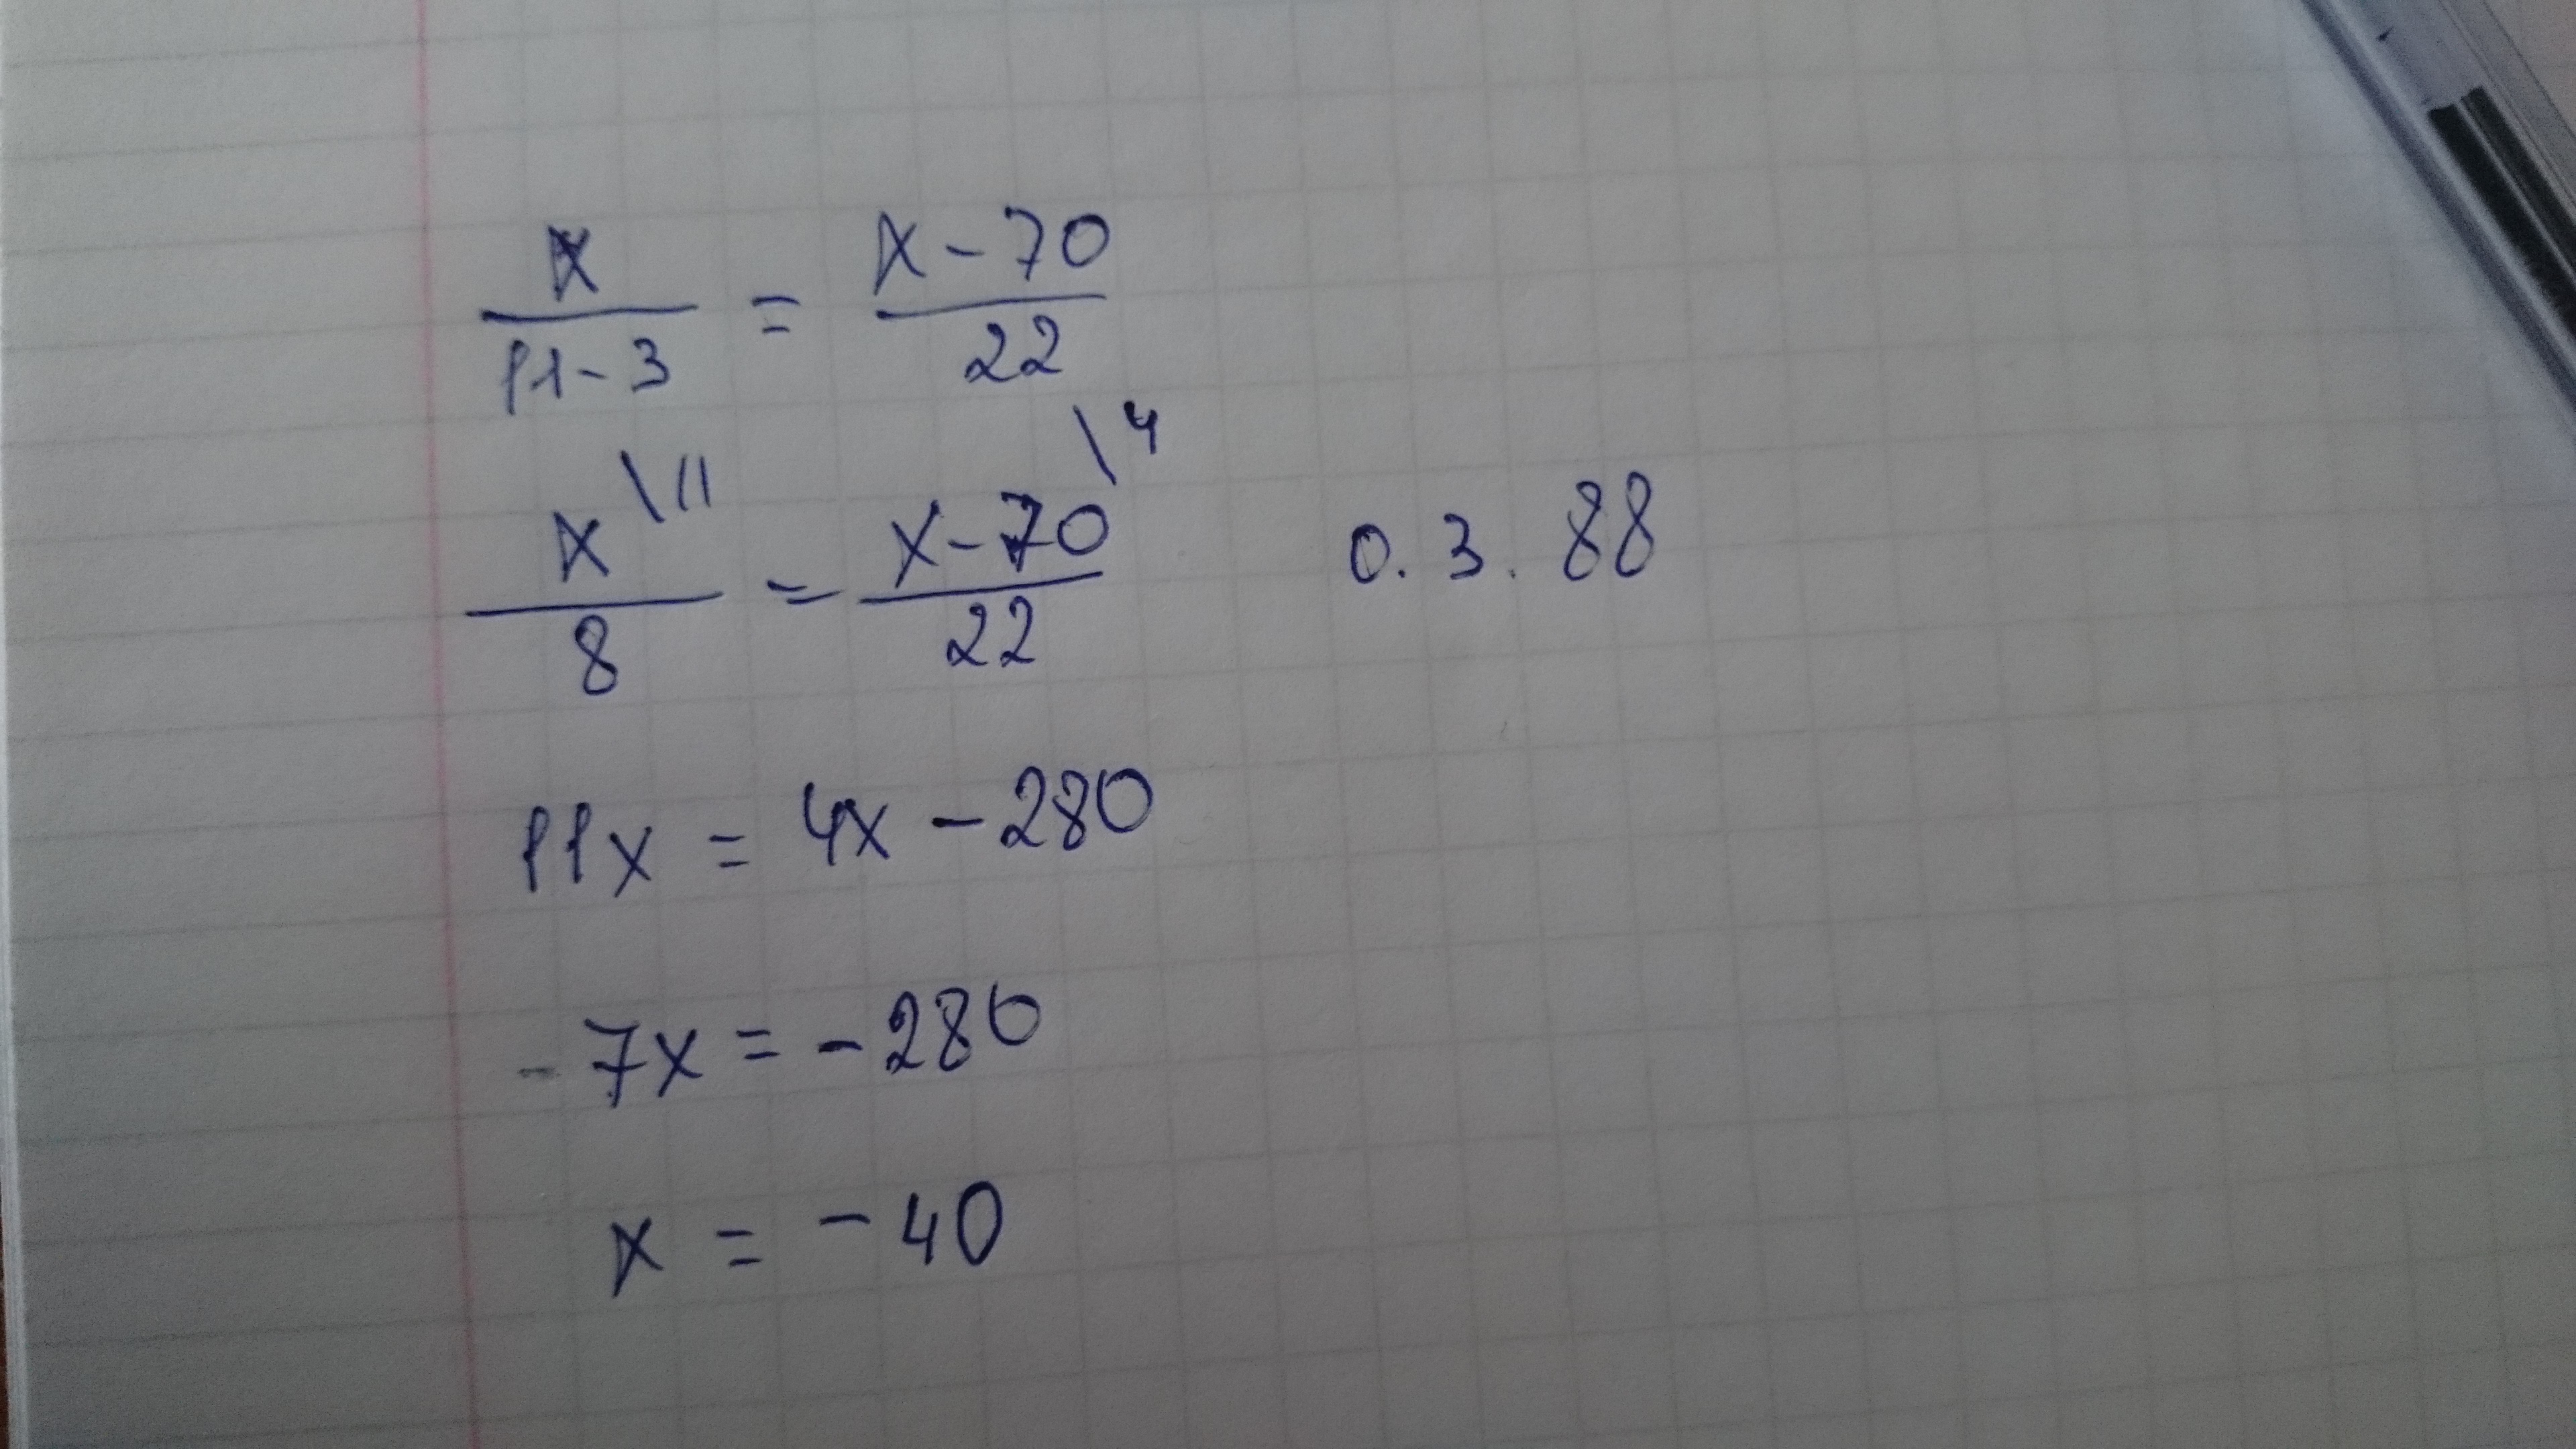 x/(11-3) = (x-70)/22
x\11/8 = (x-70\4)/22 О.З. 88
11x = 4x - 280
- 7x = - 280
x = - 40